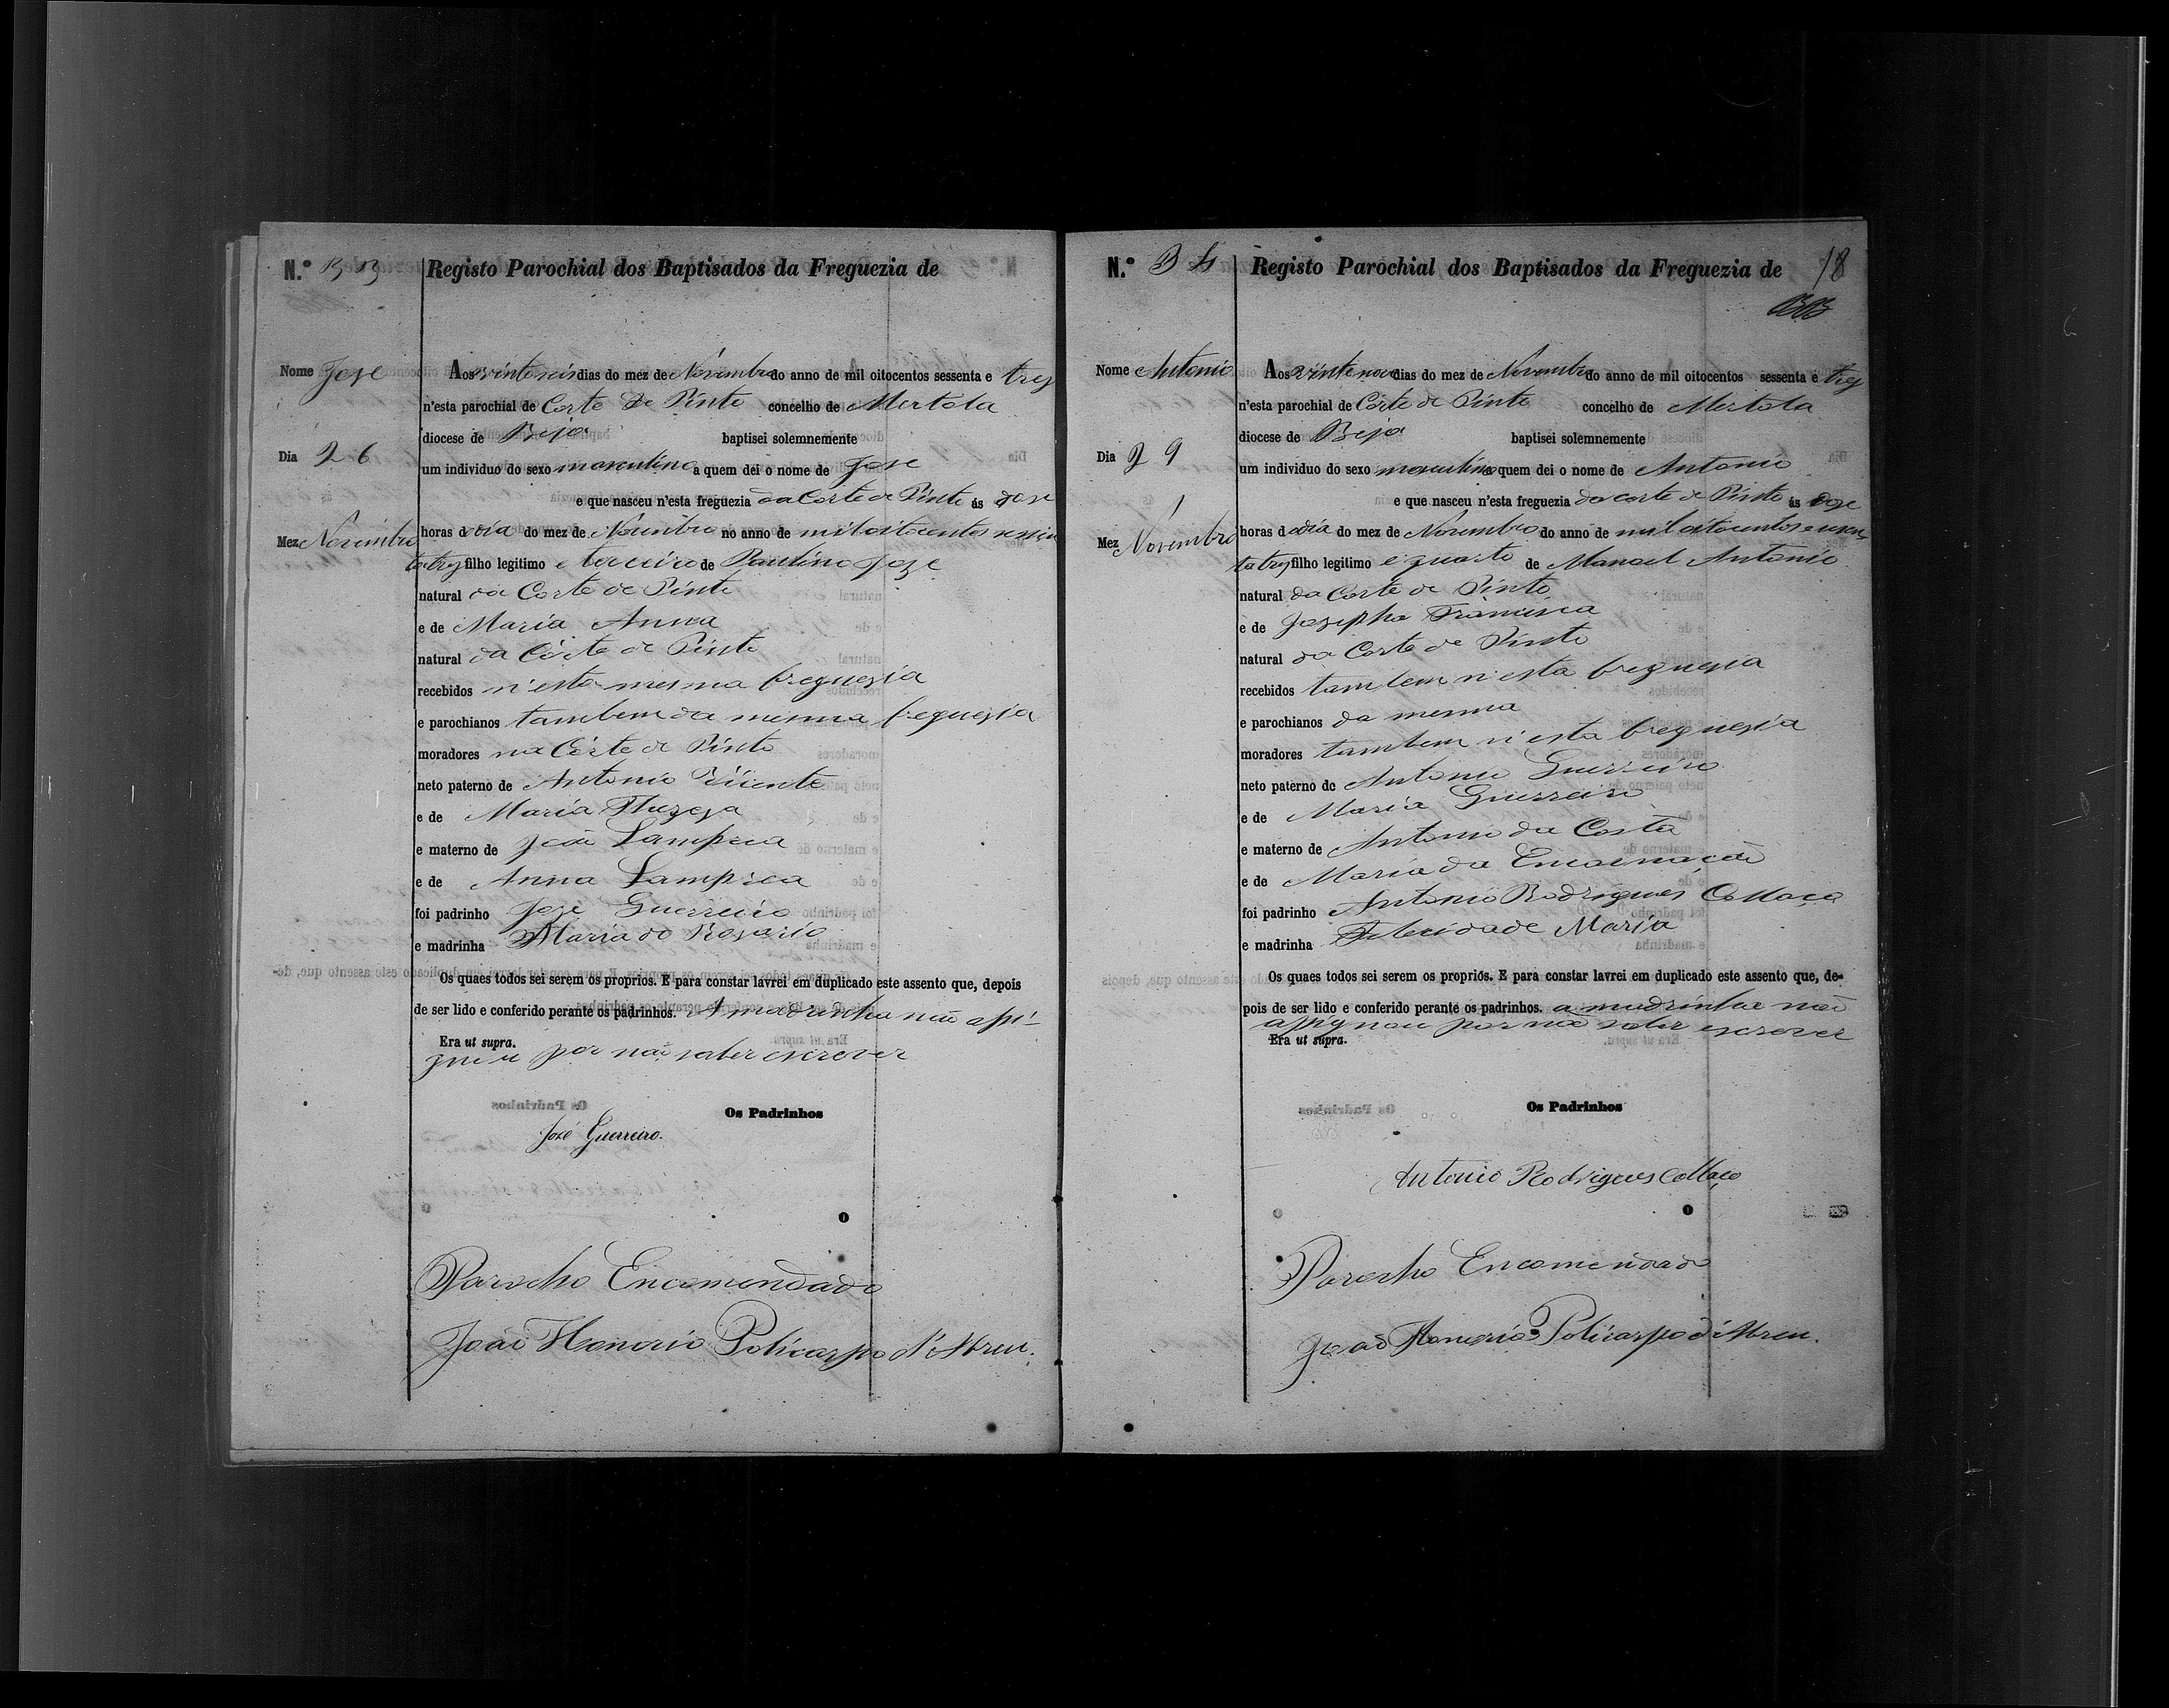 N.º 33 Registo Parochial dos Baptisados da Freguezia de
Nome Joze Aos vinte seis dias do mez de Novembro do anno de mil oitocentos sessenta e trez
n'esta parochial de Corte de Pinto concelho de Mertola
diocese de Beja baptisei solemnemente
Dia 26 um individuo do sexo masculino a quem dei o nome de Joze
e que nasceu n'esta freguezia da Corte de Pinto ás doze
Mez Novembro horas do dia do mez de Novembro no anno de mil oitocentos sessen
ta trez filho legitimo e terceiro de Paulino Joze
natural da Corte de Pinto
e de Maria Anna
natural da Corte de Pinto
recebidos n'esta mesma freguezia
e parochianos tambem da mesma freguezia
moradores na Corte de Pinto
neto paterno de Antonio Vicente
e de Maria Thereza
e materno de João Lampreia
e de Anna Lampreia
foi padrinho Joze Guerreiro
e madrinha Maria do Rozario
Os quaes todos sei serem os proprios. E para constar lavrei em duplicado este assento que, depois
de ser lido e conferido perante os padrinhos. A madrinha não assi-
Era ut supra.
gnou por não saber escrever
Os Padrinhos
José Guerreiro.
Parocho Encomendado
João Honorio Policarpo d'Abreu.
N.º 34 Registo Parochial dos Baptisados da Freguezia de 18
Nome Antonio Aos vinte nove dias do mez de Novembro do anno de mil oitocentos sessenta e trez
n'esta parochial de Corte de Pinto concelho de Mertola
diocese de Beja baptisei solemnemente
Dia 29 um individuo do sexo masculino a quem dei o nome de Antonio
e que nasceu n'esta freguezia da corte de Pinto ás doze
Mez Novembro horas do dia 1 do mez de Novembro do anno de mil oitocentos e sessen
ta trez filho legitimo e quarto de Manoel Antonio
natural da Corte de Pinto
e de Josepha Francisca
natural da Corte de Pinto
recebidos tambem n'esta freguezia
e parochianos da mesma
moradores tambem n'esta freguezia
neto paterno de Antonio Guerreiro
e de Maria Guerreiro
e materno de Antonio da Costa
e de Maria da Encarnação
foi padrinho Antonio Rodrigues Collaço
e madrinha Felecidade Maria
Os quaes todos sei serem os proprios. E para constar lavrei em duplicado este assento que, de-
pois de ser lido e conferido perante os padrinhos. a madrinha não
assignou por não saber escrever
Era ut supra.
Os Padrinhos
Antonio Rodrigues Collaço
Parocho Encomendado
João Honorio Policarpo d'Abreu.